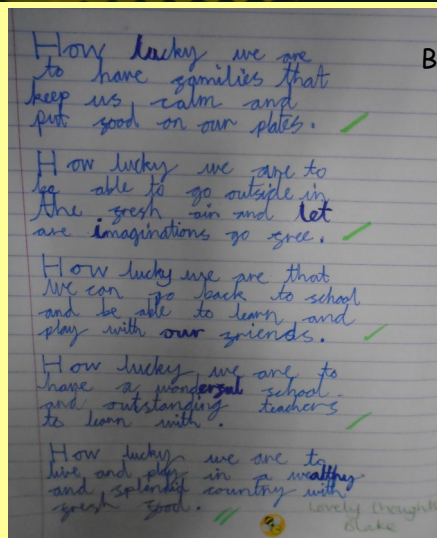 How lucky we are
to have families that
keep us calm and
put food on our plates.
B
How lucky we are to
be able to go outside in
the fresh air and let
are imaginations go free.
How lucky we are that
we can go back to school
and be able to learn and
play with our friends.
How lucky we are to
have a wonderful school
and outstanding teachers
to learn with.
How lucky we are to
live and play in a wealthy
and splendid country with
fresh food.
Lovely thoughts
Blake